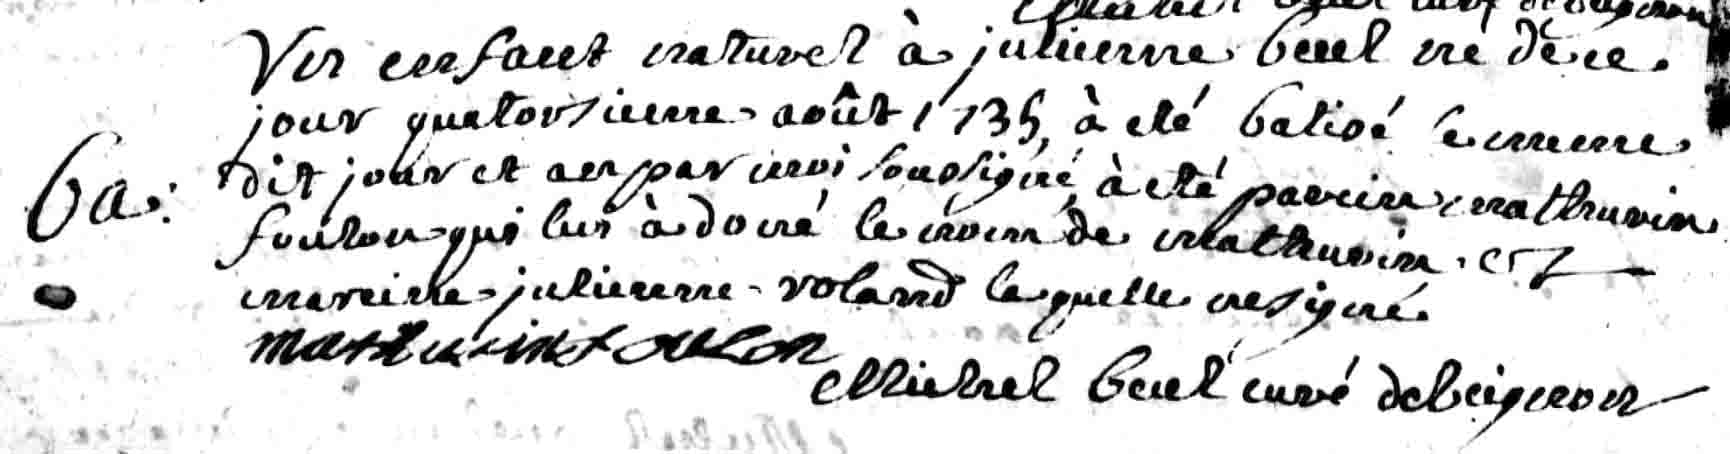 Un enfant naturel à julienne beul né de ce
jour quatorsieme août 1735 à eté batisé le meme
ba: dit jour et an par moi sousigné, à eté parein mathurin
foulon qui lui à doné le nom de mathurin. et
mareine julienne voland laquelle ne signe.
mathurin foulon
Michel beul curé de beignon